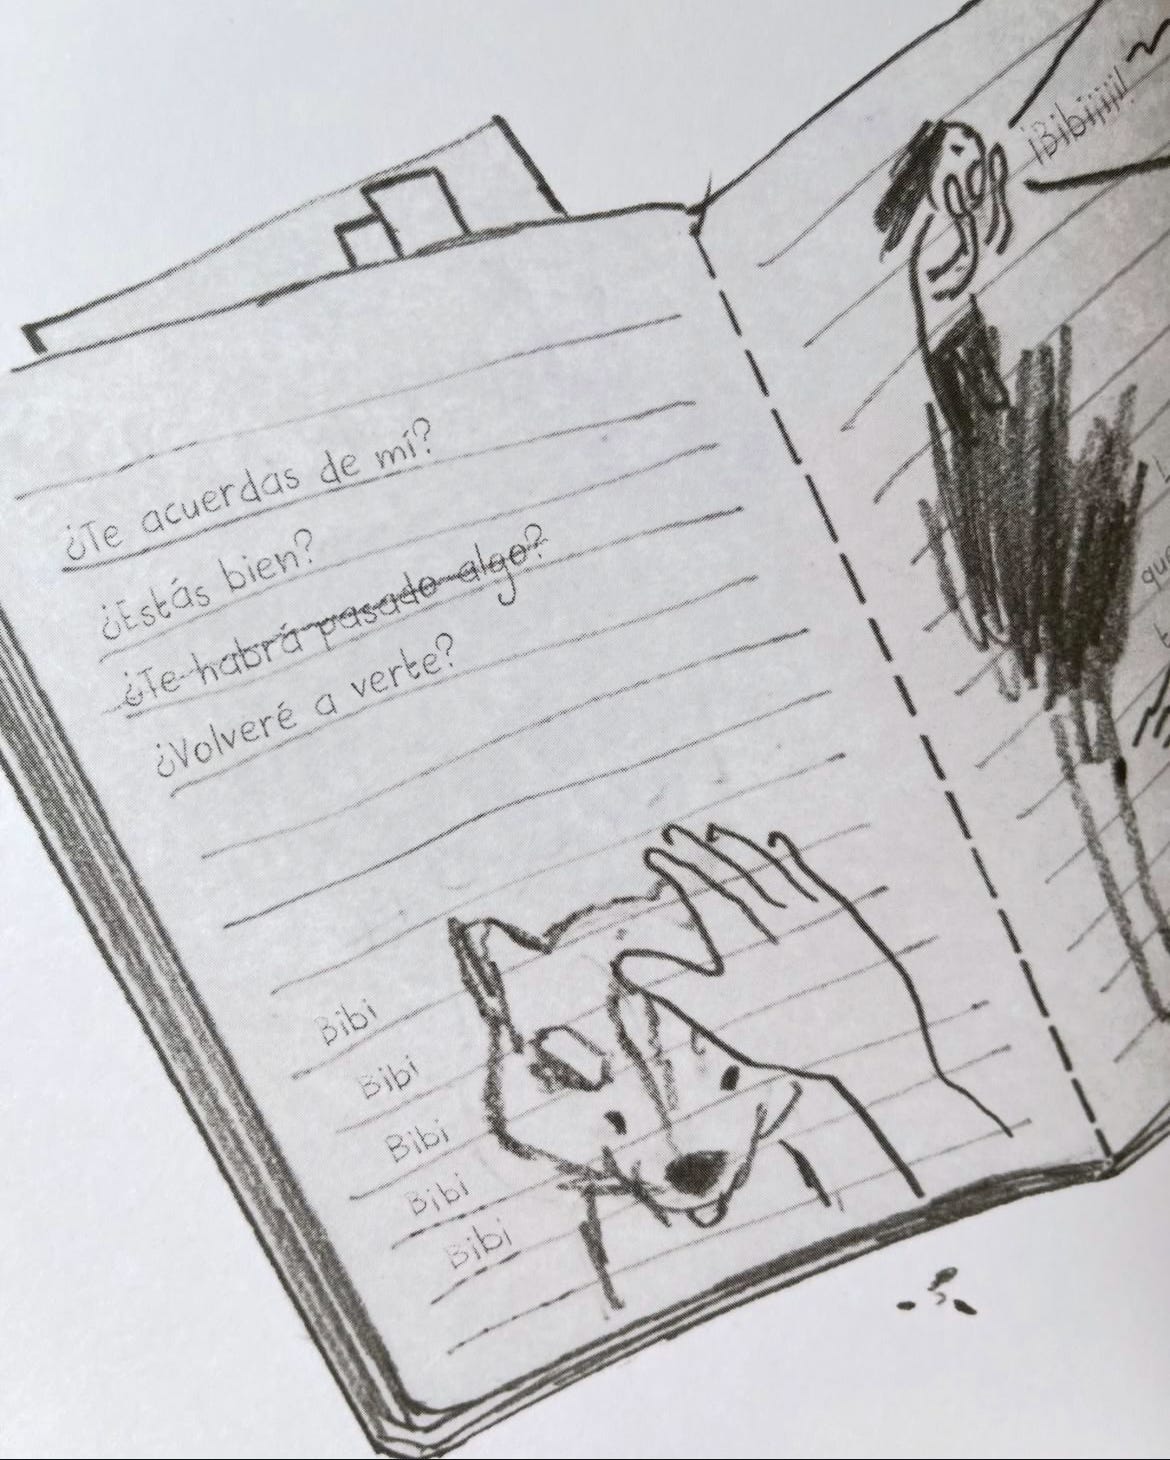 ¿Te acuerdas de mí?
¿Estás bien?
¿Te habrá pasado algo?
¿Volveré a verte?
Bibi
Bibi
Bibi
Bibi
Bibi
¡Bibiiiii!